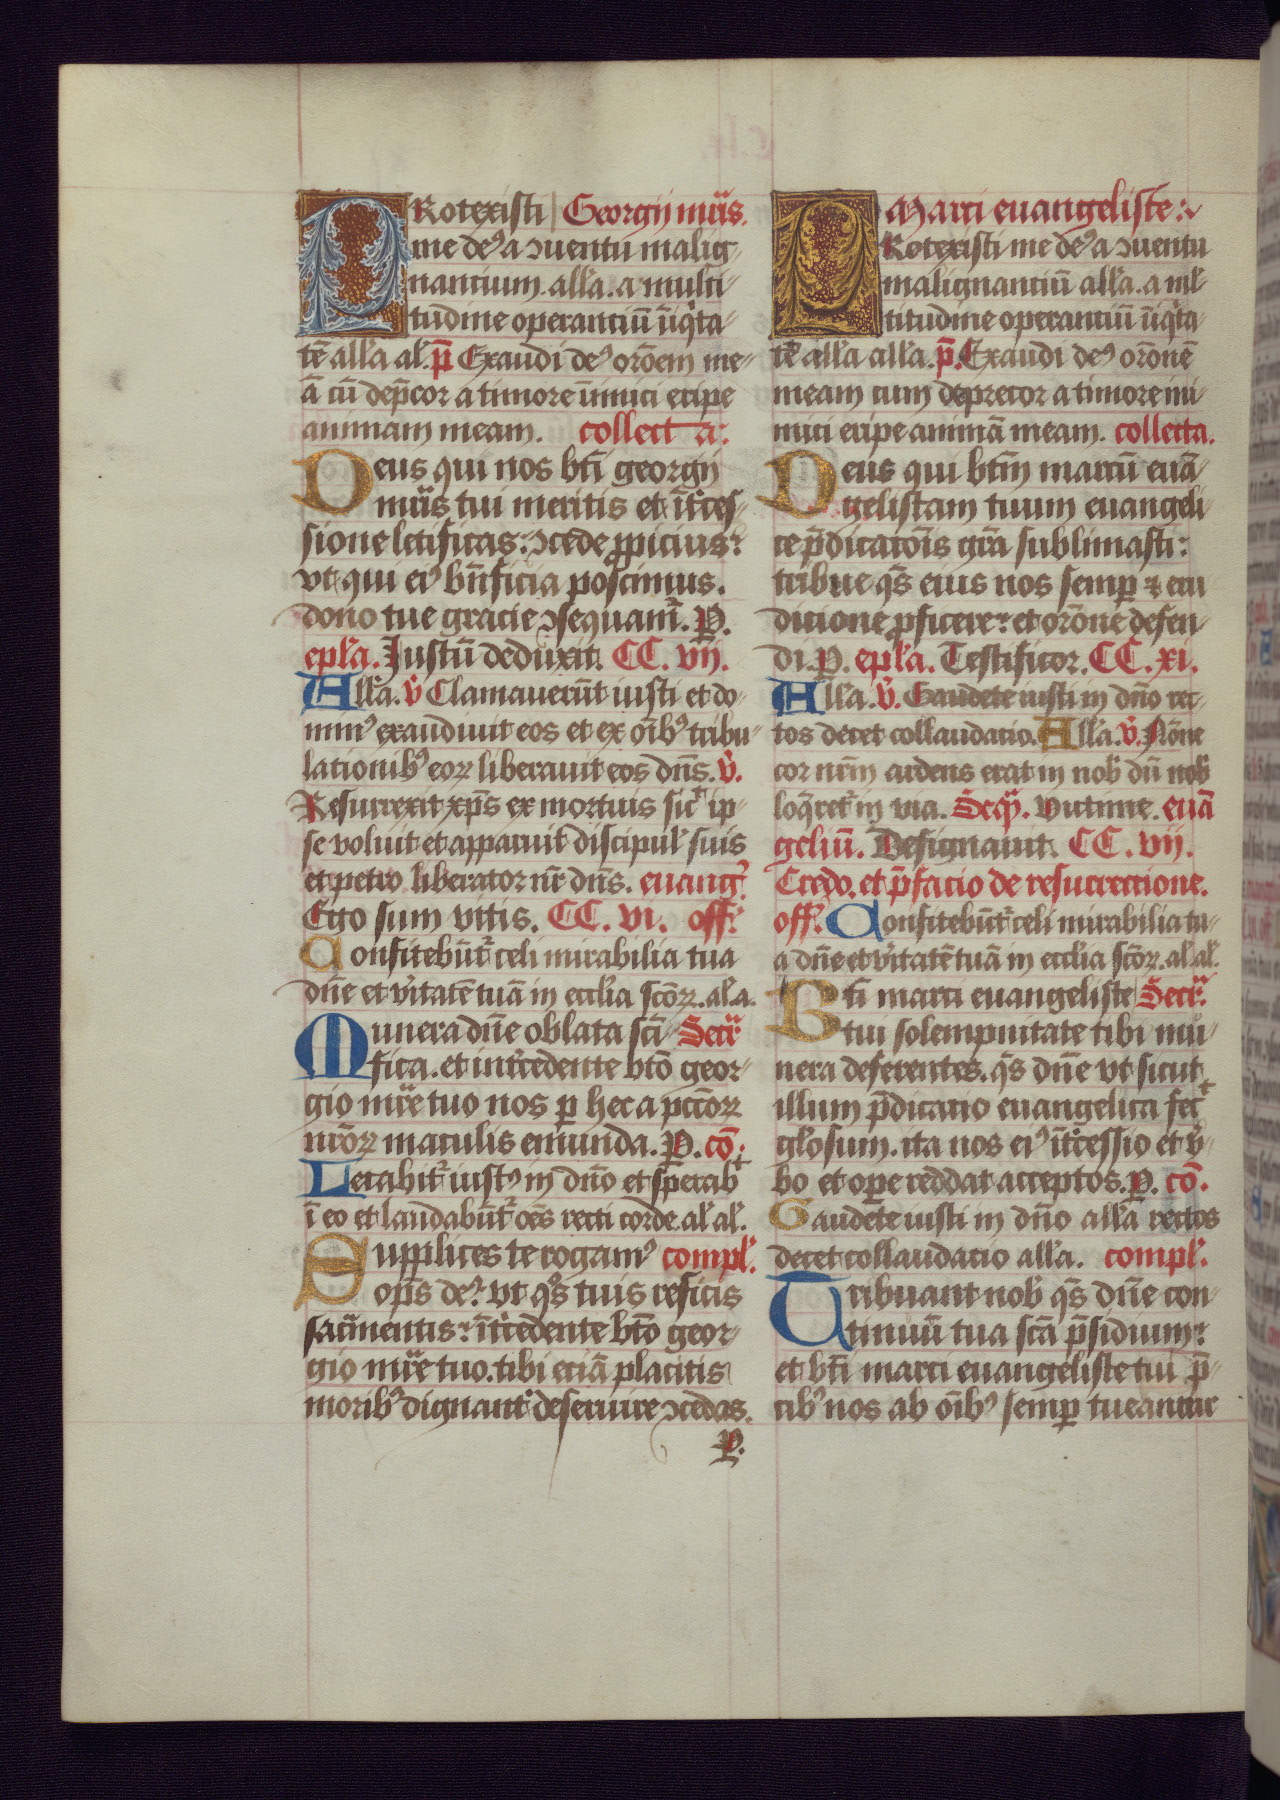 PRotexisti Georgij mr̄is.
me de⁹ a ↄuentu malig-
nantium. all'a. a multi-
tudine operantiū īiq̇ta-
tē all'a al'. p̄ Exaudi de⁹ orōem me-
ā cū dep̄cor a timore inimici eripe
animam meam. collecta:
Deus qui nos bt̄i georgij
mr̄is tui meritis et īt̄ces-
sione letificas: ↄcede ꝓpicius:
vt qui ei⁹ bn̄ficia poscimus.
dono tue gracie ↄsequam̄. P.
epl'a. Justū deduxit. CC. vij.
All'a. v̄ Clamauerūt iusti et do-
min⁹ exaudiuit eos et ex oīb⁹ tribu-
lationib⁹ eoꝝ liberauit eos dn̄s. v̄.
Resurrexit xp̄s ex mortuis sic̄ ip-
se voluit et apparuit discipul' suis
et petro liberator nr̄ dn̄s. euanḡ
Ego sum vitis. CC. vi. off̄.
Confitebūt̄ celi mirabilia tua
dn̄e et v̄itatē tuā in eccl'ia scōꝝ. al. a.
Munera dn̄e oblata scī- Secr̄
fica. et int̄cedente bt̄o geor-
gio mr̄e tuo nos ꝑ hec a pcc̄oꝝ
nr̄oꝝ maculis emunda. P. cō:
Letabit̄ iust⁹ in dn̄o et sperab̄
ī eo et laudabūt̄ oēs recti corde. al' al'.
Supplices te rogam⁹ compl'.
op̄s de⁹. vt q̄s tuis reficis
sacr̄mentis: īt̄cedente bt̄o geor-
gio mr̄e tuo. tibi eciā placitis
morib⁹ dignant̄ deseruire ↄcedas.
P.
Marci euangeliste:
PRotexisti me de⁹ a ↄuentu
malignantiū all'a. a ml'-
titudine operantiū īiq̇ta-
tē all'a all'a. p̄. Exaudi de⁹ orōnē
meam cum deprecor a timore ini-
mici eripe animā meam. collecta.
Deus qui bt̄m marcū euā-
gelistam tuum euangeli-
ce p̄dicatōis gr̄a sublimasti:
tribue q̄s eius nos semꝑ ⁊ eru
dicione ꝓficere: et orōne defen-
di. P. epl'a. Testificor. CC. xi.
All'a. v̄. Gaudete iusti in dn̄o rec-
tos decet collaudatio. All'a. v̄. Nōne
cor nr̄m ardens erat in nob' dū nob'
loq̄ret̄ in via. Seq̄. Vutime. euā
geliū. Designauit. CC. vij.
Credo. et p̄facio de resurrectione.
off̄. Confitebūt̄ celi mirabilia tu-
a dn̄e et v̄itatē tuā in eccl'ia scōꝝ. al' al'.
Bt̄i marci euangeliste Secr̄.
tui solempnitate tibi mu-
nera deferentes. q̄s dn̄e vt sicut
illum p̄dicatio euangelica fec̄
gl'osum. ita nos ei⁹ īt̄cessio et v̄-
bo et oꝑe reddat acceptos. P. cō.
Gaudete iusti in dn̄o all'a rectos
decet collaudacio all'a. compl'.
Tribuant nob' q̄s dn̄e con-
tinuū tua scā p̄sidium:
et bt̄i marci euangeliste tui p̄-
cib⁹ nos ab oīb⁹ semꝑ tueantur